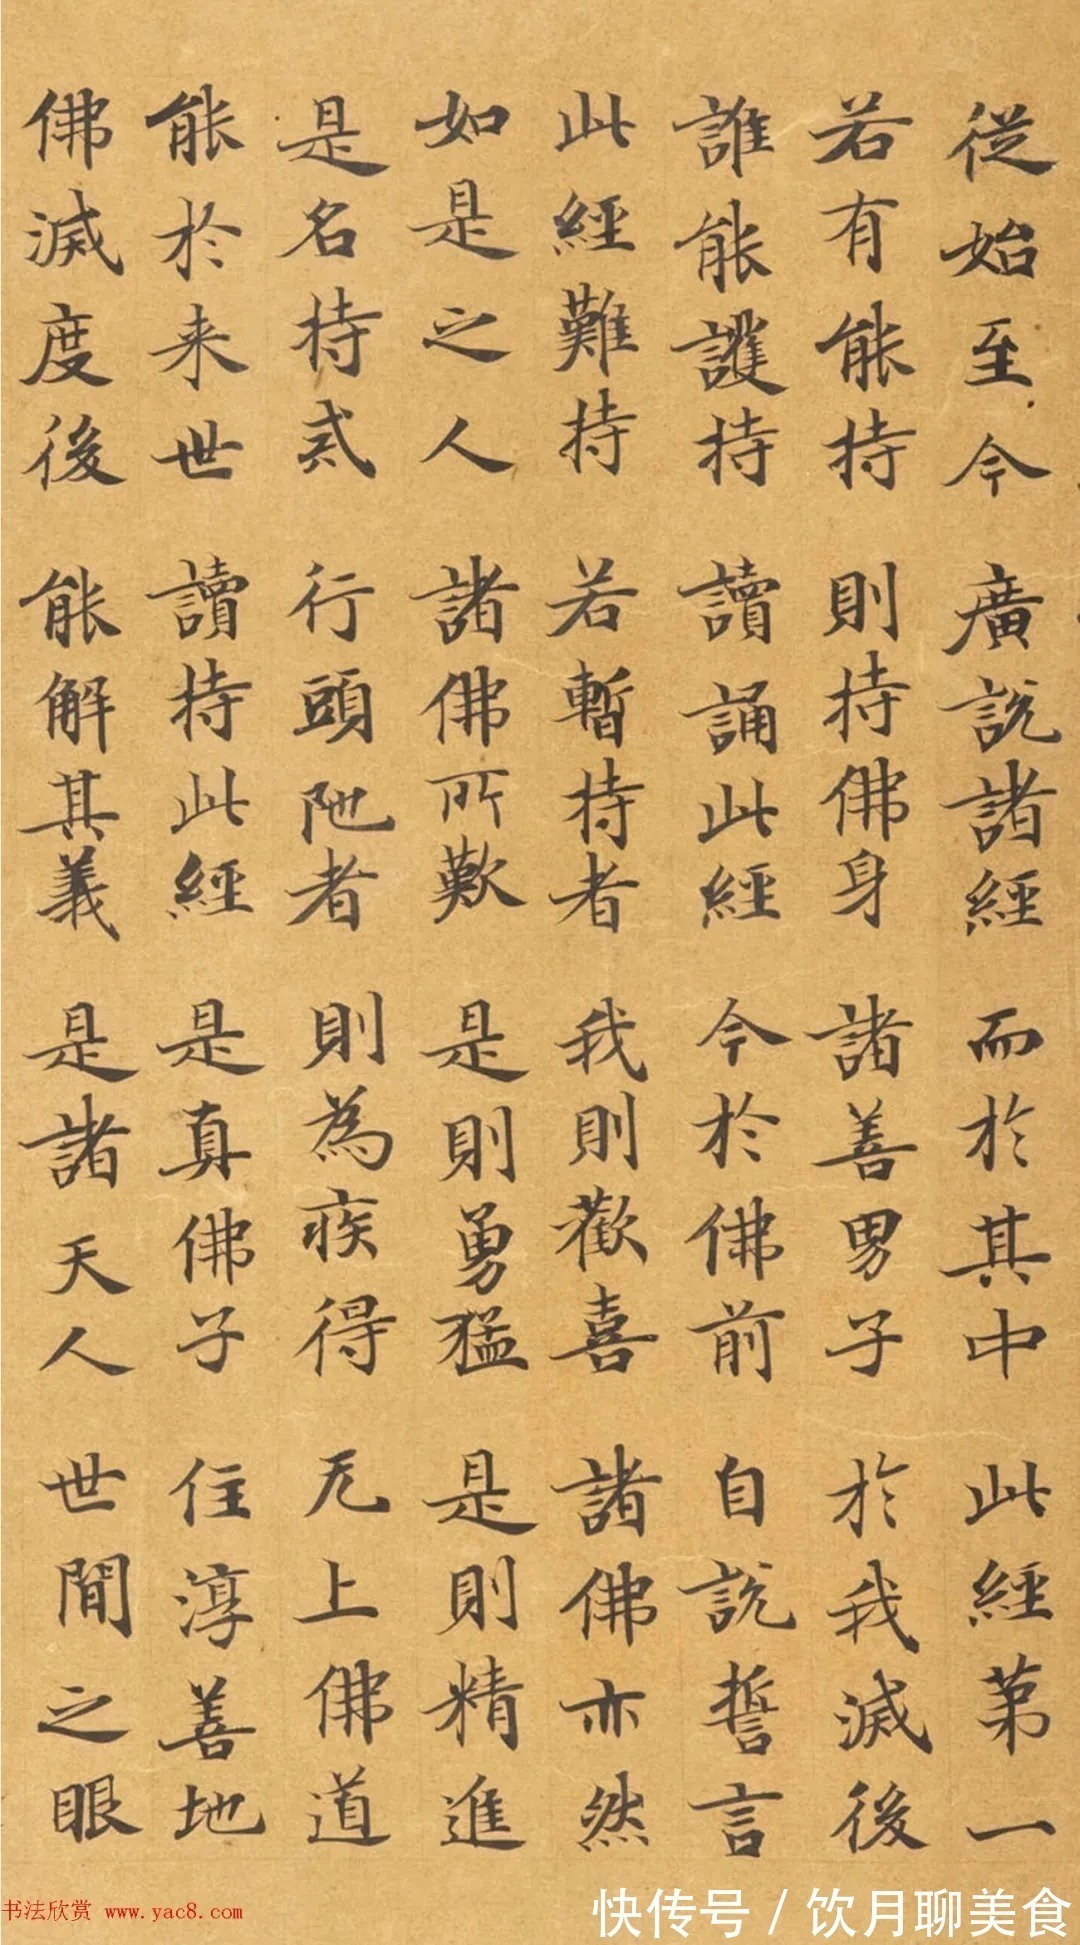 從始至今 廣說諸經 而於其中 此經第一
若有能持 則持佛身 諸善男子 於我滅後
誰能護持 讀誦此經 今於佛前 自說誓言
此經難持 若暫持者 我則歡喜 諸佛亦然
如是之人 諸佛所歎 是則勇猛 是則精進
是名持貳 行頭陁者 則為疾得 无上佛道
能於来世 讀持此經 是真佛子 住淳善地
佛滅度後 能解其義 是諸天人 世間之眼
书法欣赏 www.yac8.com
快传号 / 饮月聊美食